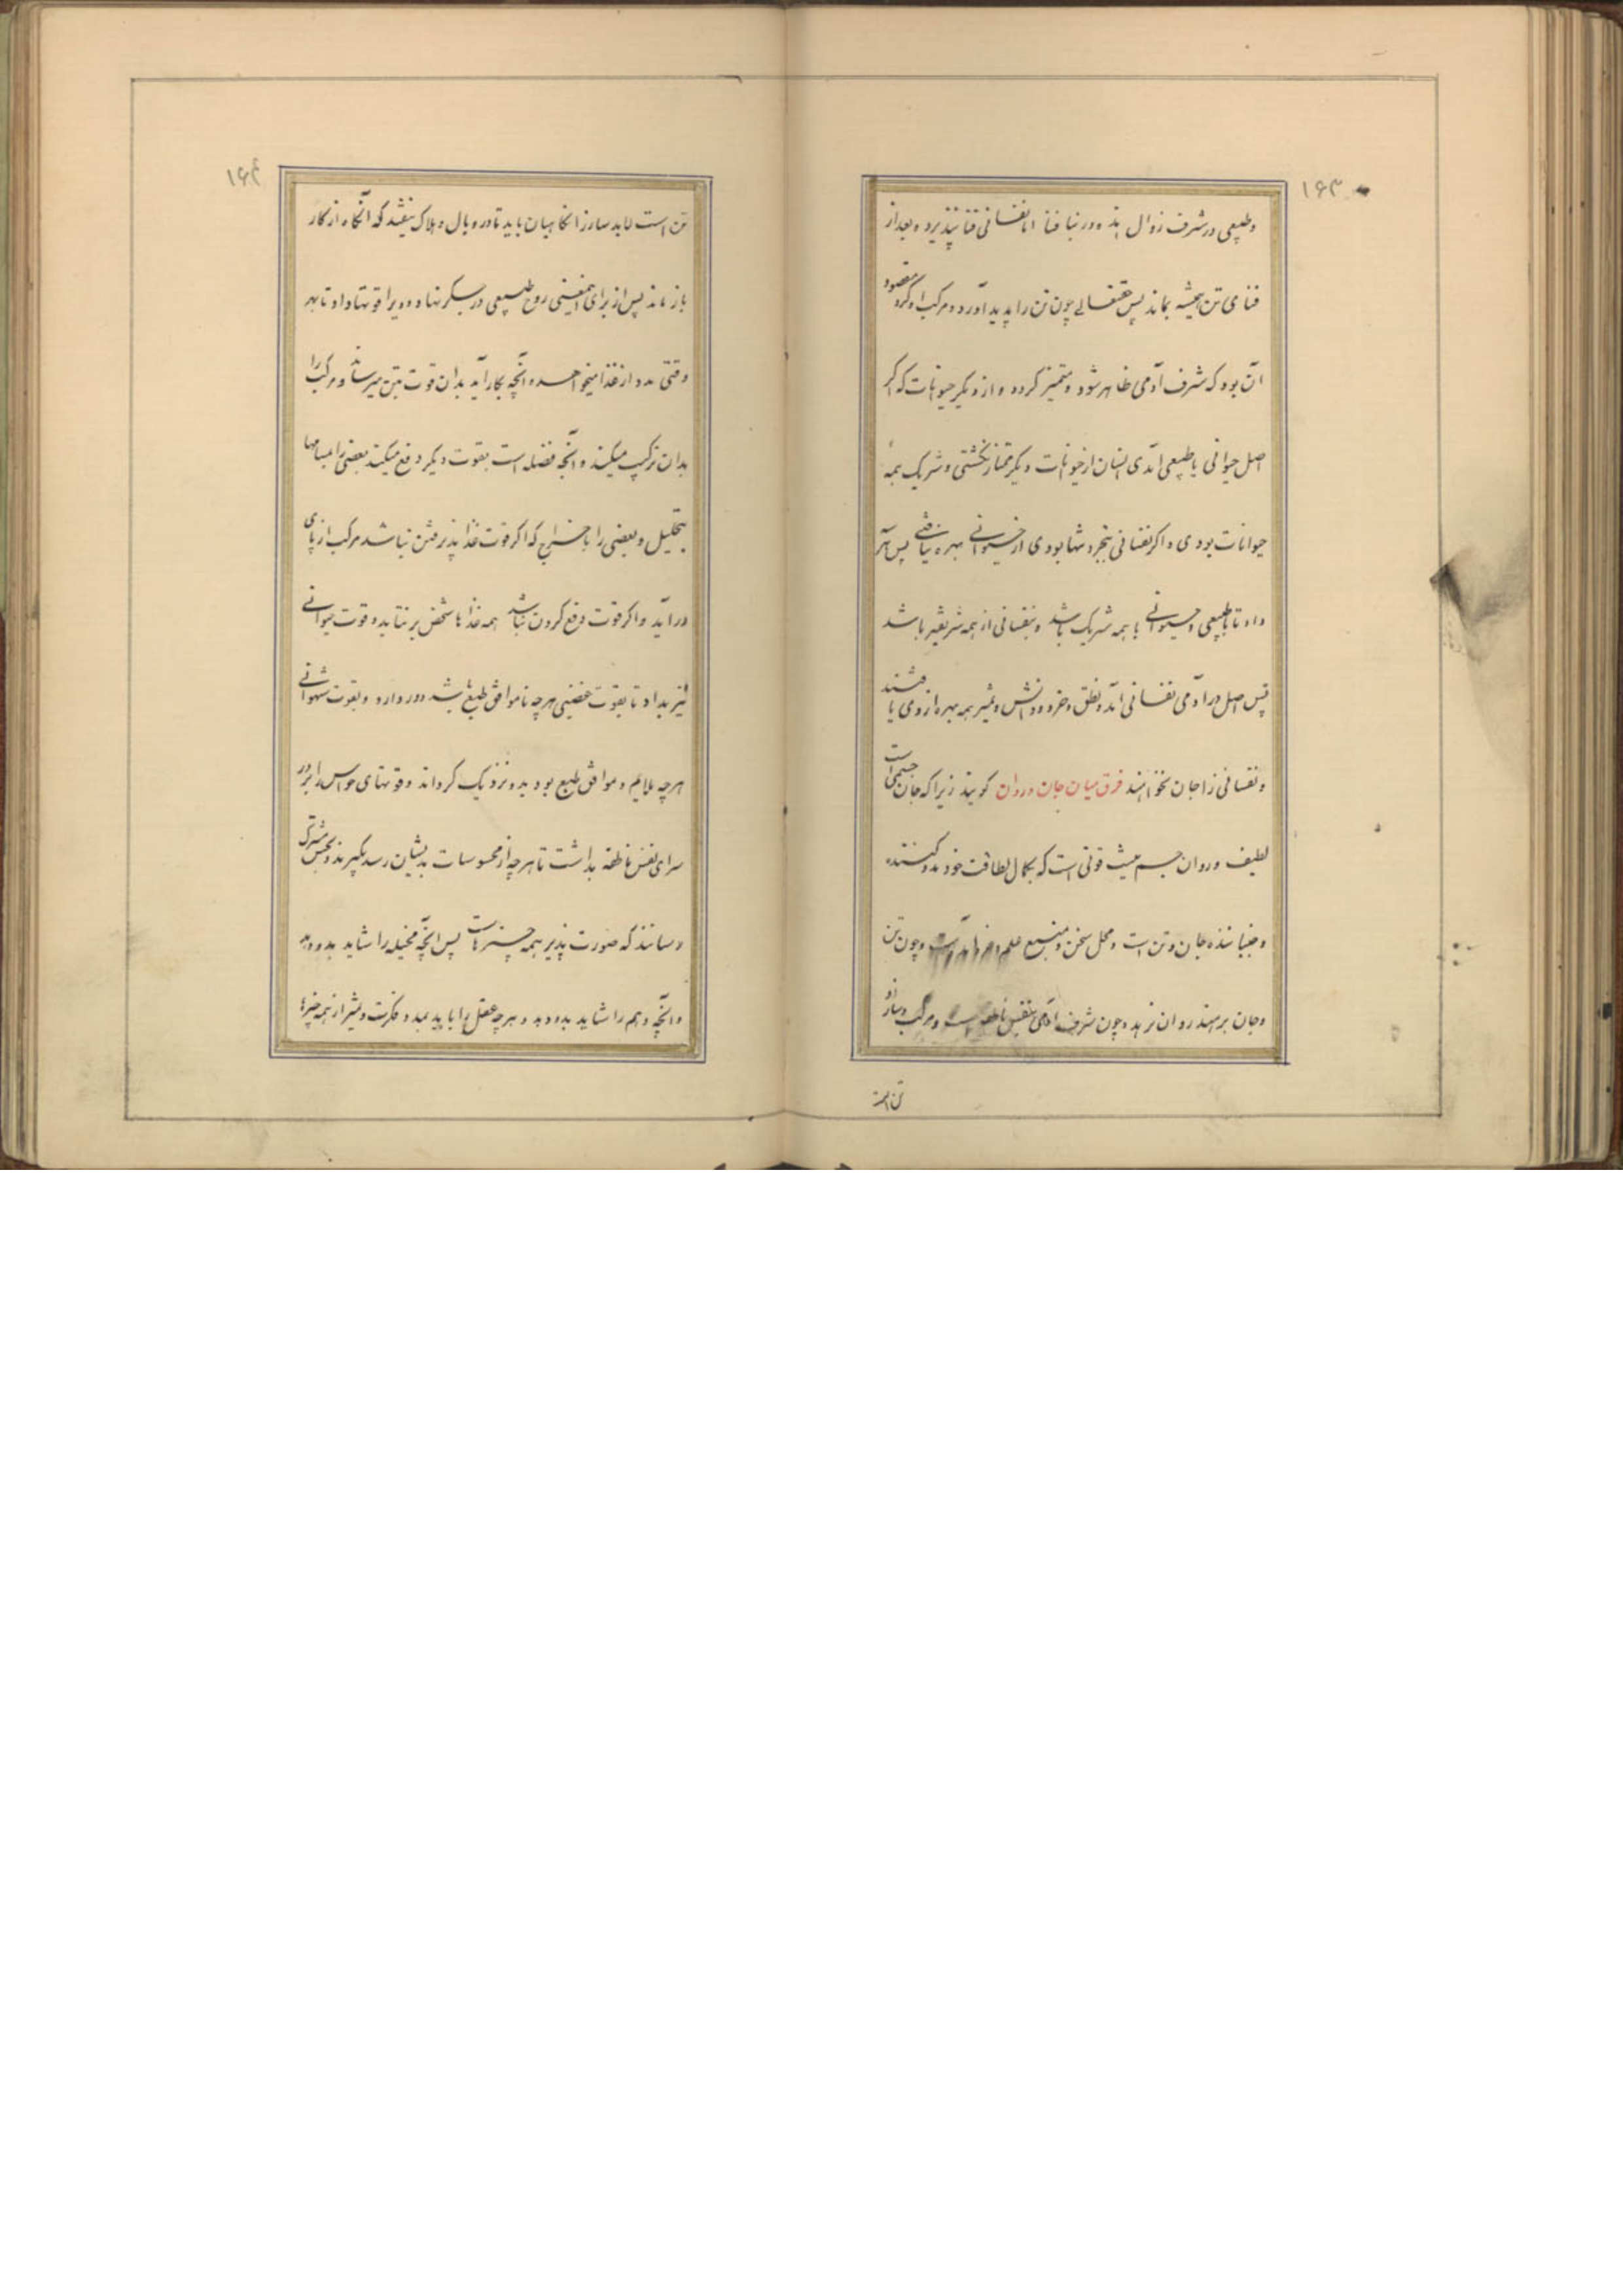 ۱۶۳
وطبیعی در شرف زوال اند و در نیا فنا اما نفسانی فنا نپذیرد و بعد از
فنای تن همیشه بماند پس حقتعالی چون تن را پدید آورد و مرکب او کرد مقصود
آن بود که شرف آدمی ظاهر شود و متمیز کردد و از دیکر حیوانات که اکر
اصل حیوانی یا طبیعی آمدی انسان از حیوانات دیکر ممتاز نکشتی و شریک همه
حیوانات بودی و اکر نفسانی بمجرد تنها بودی از حیوانی بهره نیافتی پس هر
داد تا بطبیعی و حیوانی با همه شریک باشد و بنفسانی از همه شریفتر باشد
پس اصل در آدمی نفسانی آمد و نطق و خرد و دانش و تمیز همه بهره از وی یافتند
و نفسانی را جان نخوانند فرق میان جان و روان کویند زیرا که جان جسمی است
لطیف و روان جسم نیست قوتی است که بکمال لطافت خود مدد کننده
و جنباننده جان و تن است و محل سخن و منبع علم و چون تن
و جان برسند روان نرسد و چون شرف آدمی بنفس ناطقه است و مرکب و ساز او
تن است
۱۶۴
تن است لابد ساز را نکاهبان باید تا در وبال و هلاک نیفتد که آنکاه از کار
باز ماند پس از برای اینمعنی روح طبیعی در جسکر نهاد و ویرا قوتها داد تا بهر
وقتی مدد از غذا میخواهد و آنچه بکار آید بدان قوت بتن میرساند و مرکب را
بدان ترکیب میکند و آنچه فضله است بقوت دیکر دفع میکند بعضی را بمسامها
بتحلیل و بعضی را باخراج که اکر قوت غذا پذیرفتن نباشد مرکب از پای
در آید و اکر قوت دفع کردن نباشد همه غذا با شخص بر نتابد و قوت حیوانی
نیز بداد تا بقوت غضبی هرچه ناموافق طبع باشد دور دارد و بقوت شهوانی
هرچه ملایم و موافق طبع بود بدو نزدیک کرداند و قوتهای حواس را بر در
سرای نفس ناطقه بداشت تا هرچه از محسوسات بدیشان رسد بکیرند و بحس مشترک
رسانند که صورت پذیر همه چیزهاست پس آنچه مخیله را شاید بدو دهد
و آنچه وهم را شاید بدو دهد و هرچه عقل را باید بمدد فکرت و تمیز از همه چیزها